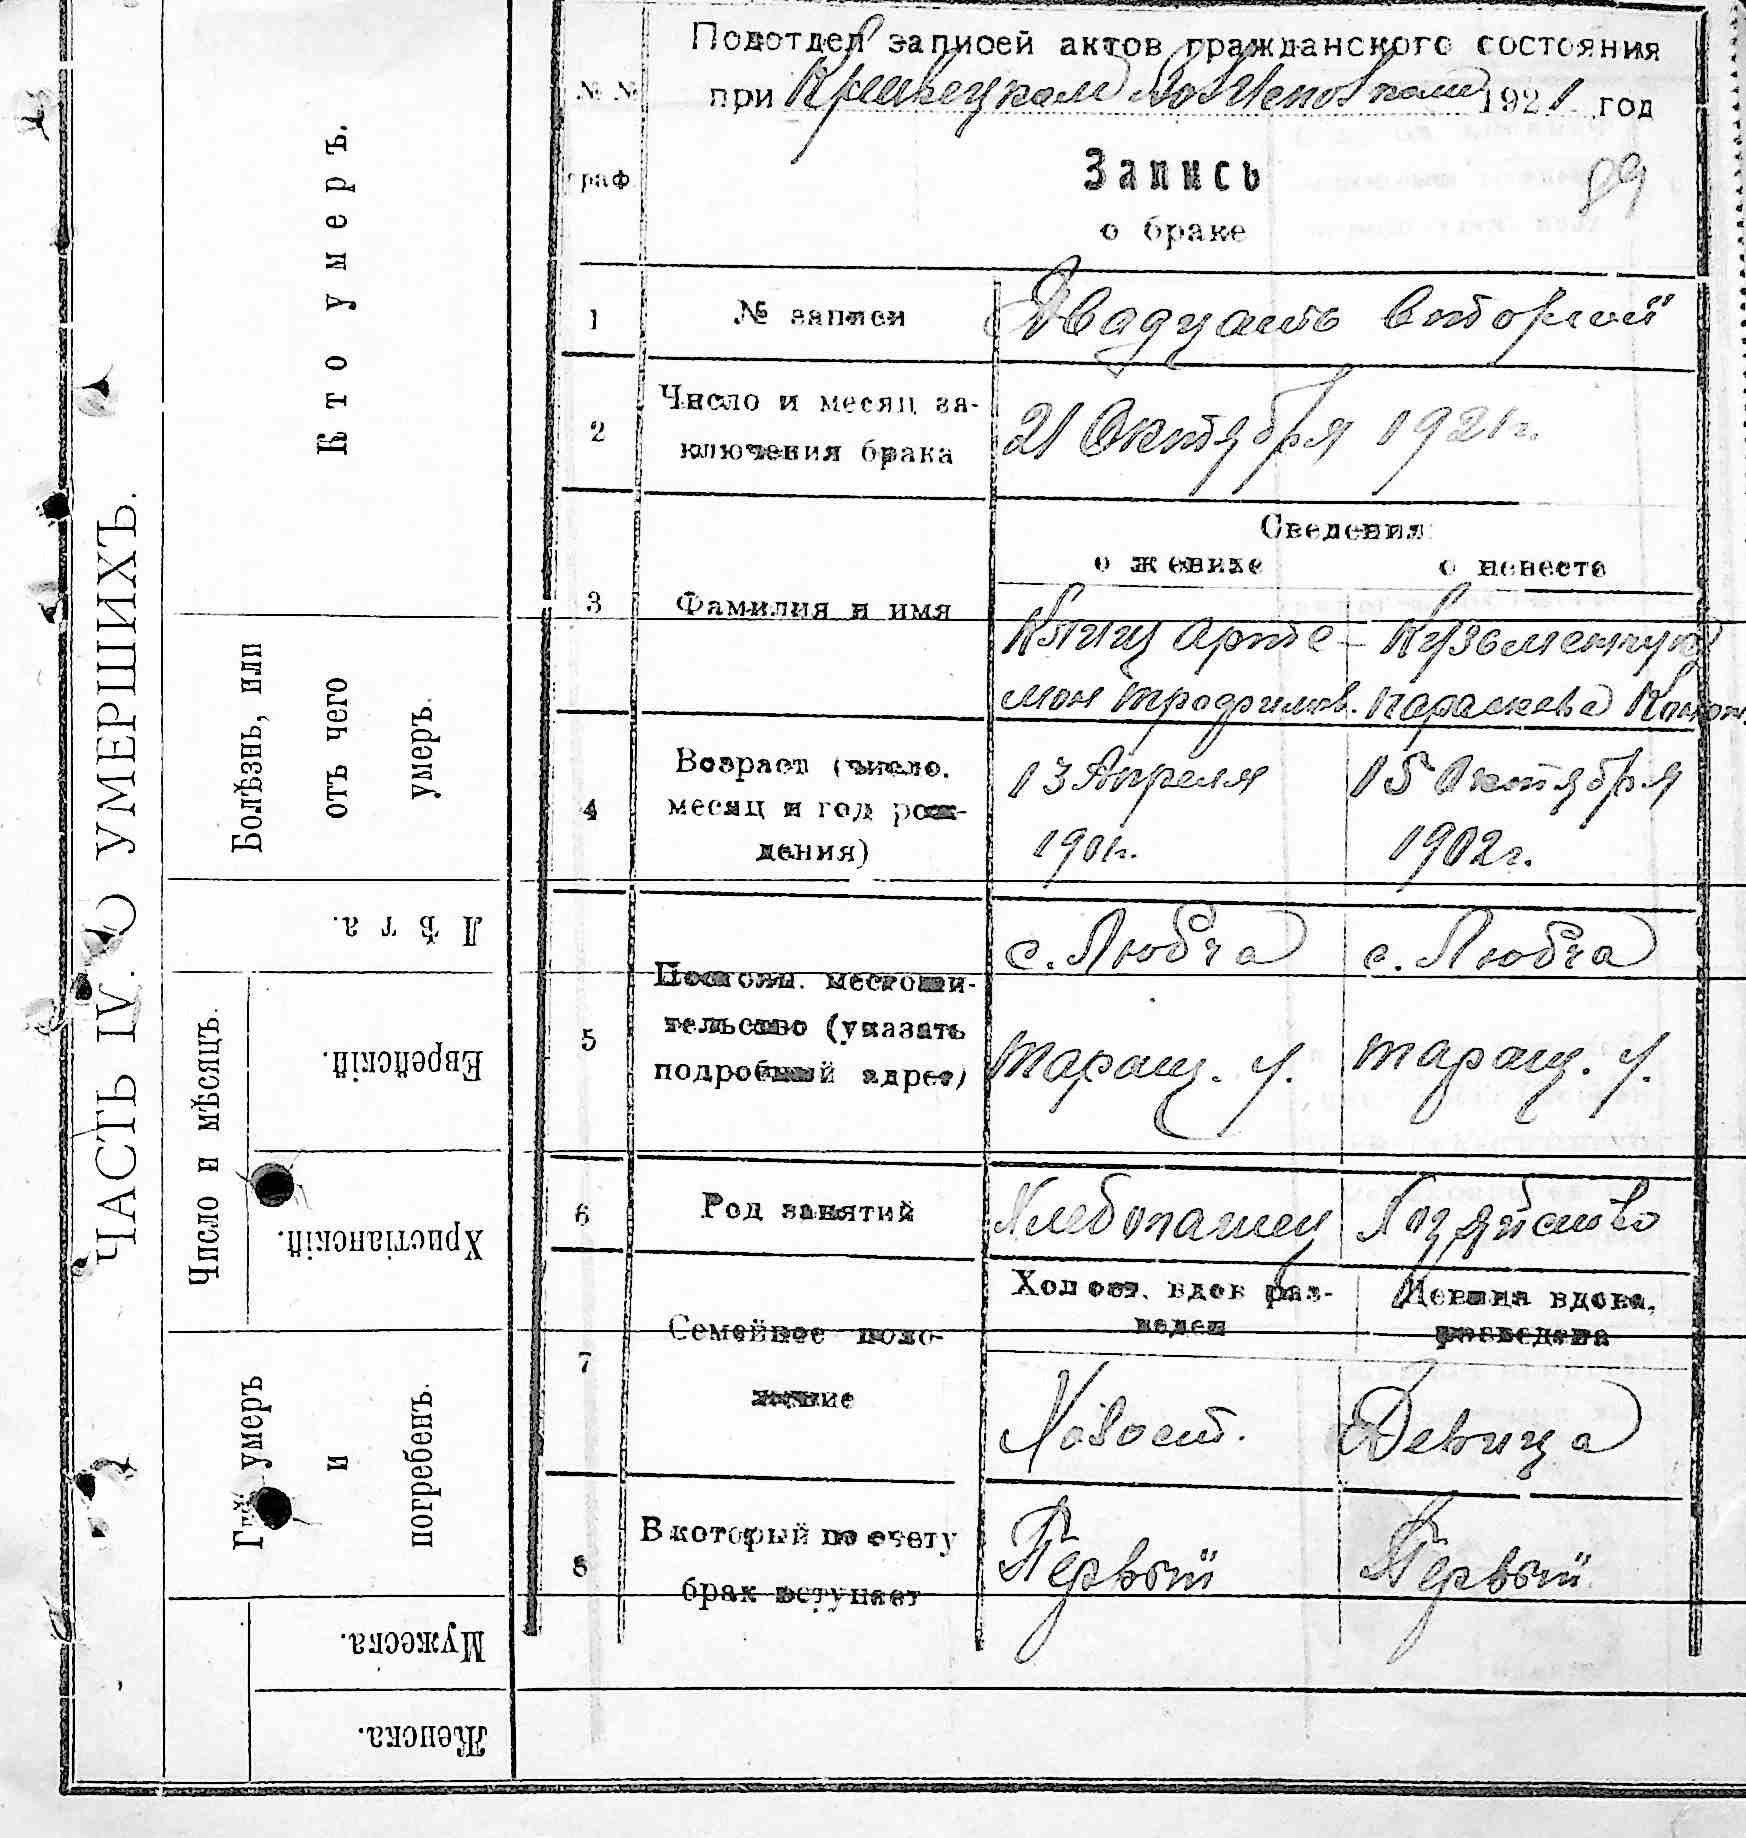 ЧАСТЬ IV. О УМЕРШИХЪ.
Кто умеръ.
Болѣзнь, или
отъ чего
умеръ.
Лѣта.
Число и мѣсяцъ.
Еврейскій.
Христіанскій.
умеръ
и
погребенъ.
Мужеска.
Женска.
Подотдел записей актов гражданского состояния
№ №
при 1921 год
граф.
Запись
89
о браке
1
№ записи
Двадцать второй
2
Число и месяц за-
ключения брака
21 Октября 1921 г.
Сведения
о женихе
о невесте
3
Фамилия и имя
Арте-
мон Трофимов.
Кузьменчук
Параскева
4
Возраст (число,
месяц и год рож-
дения)
13 Апреля
1901 г.
15 Октября
1902 г.
5
Постоян. местожи-
тельство (указать
подробный адрес)
с. Любча
Таращ. у.
с. Любча
Таращ. у.
6
Род занятий
Хлебопашец
Хозяйство
7
Семейное поло-
жение
Холост. вдов раз-
веден
Девица вдова,
разведена
Холост.
Девица
8
В который по счету
брак вступает
Первый
Первый